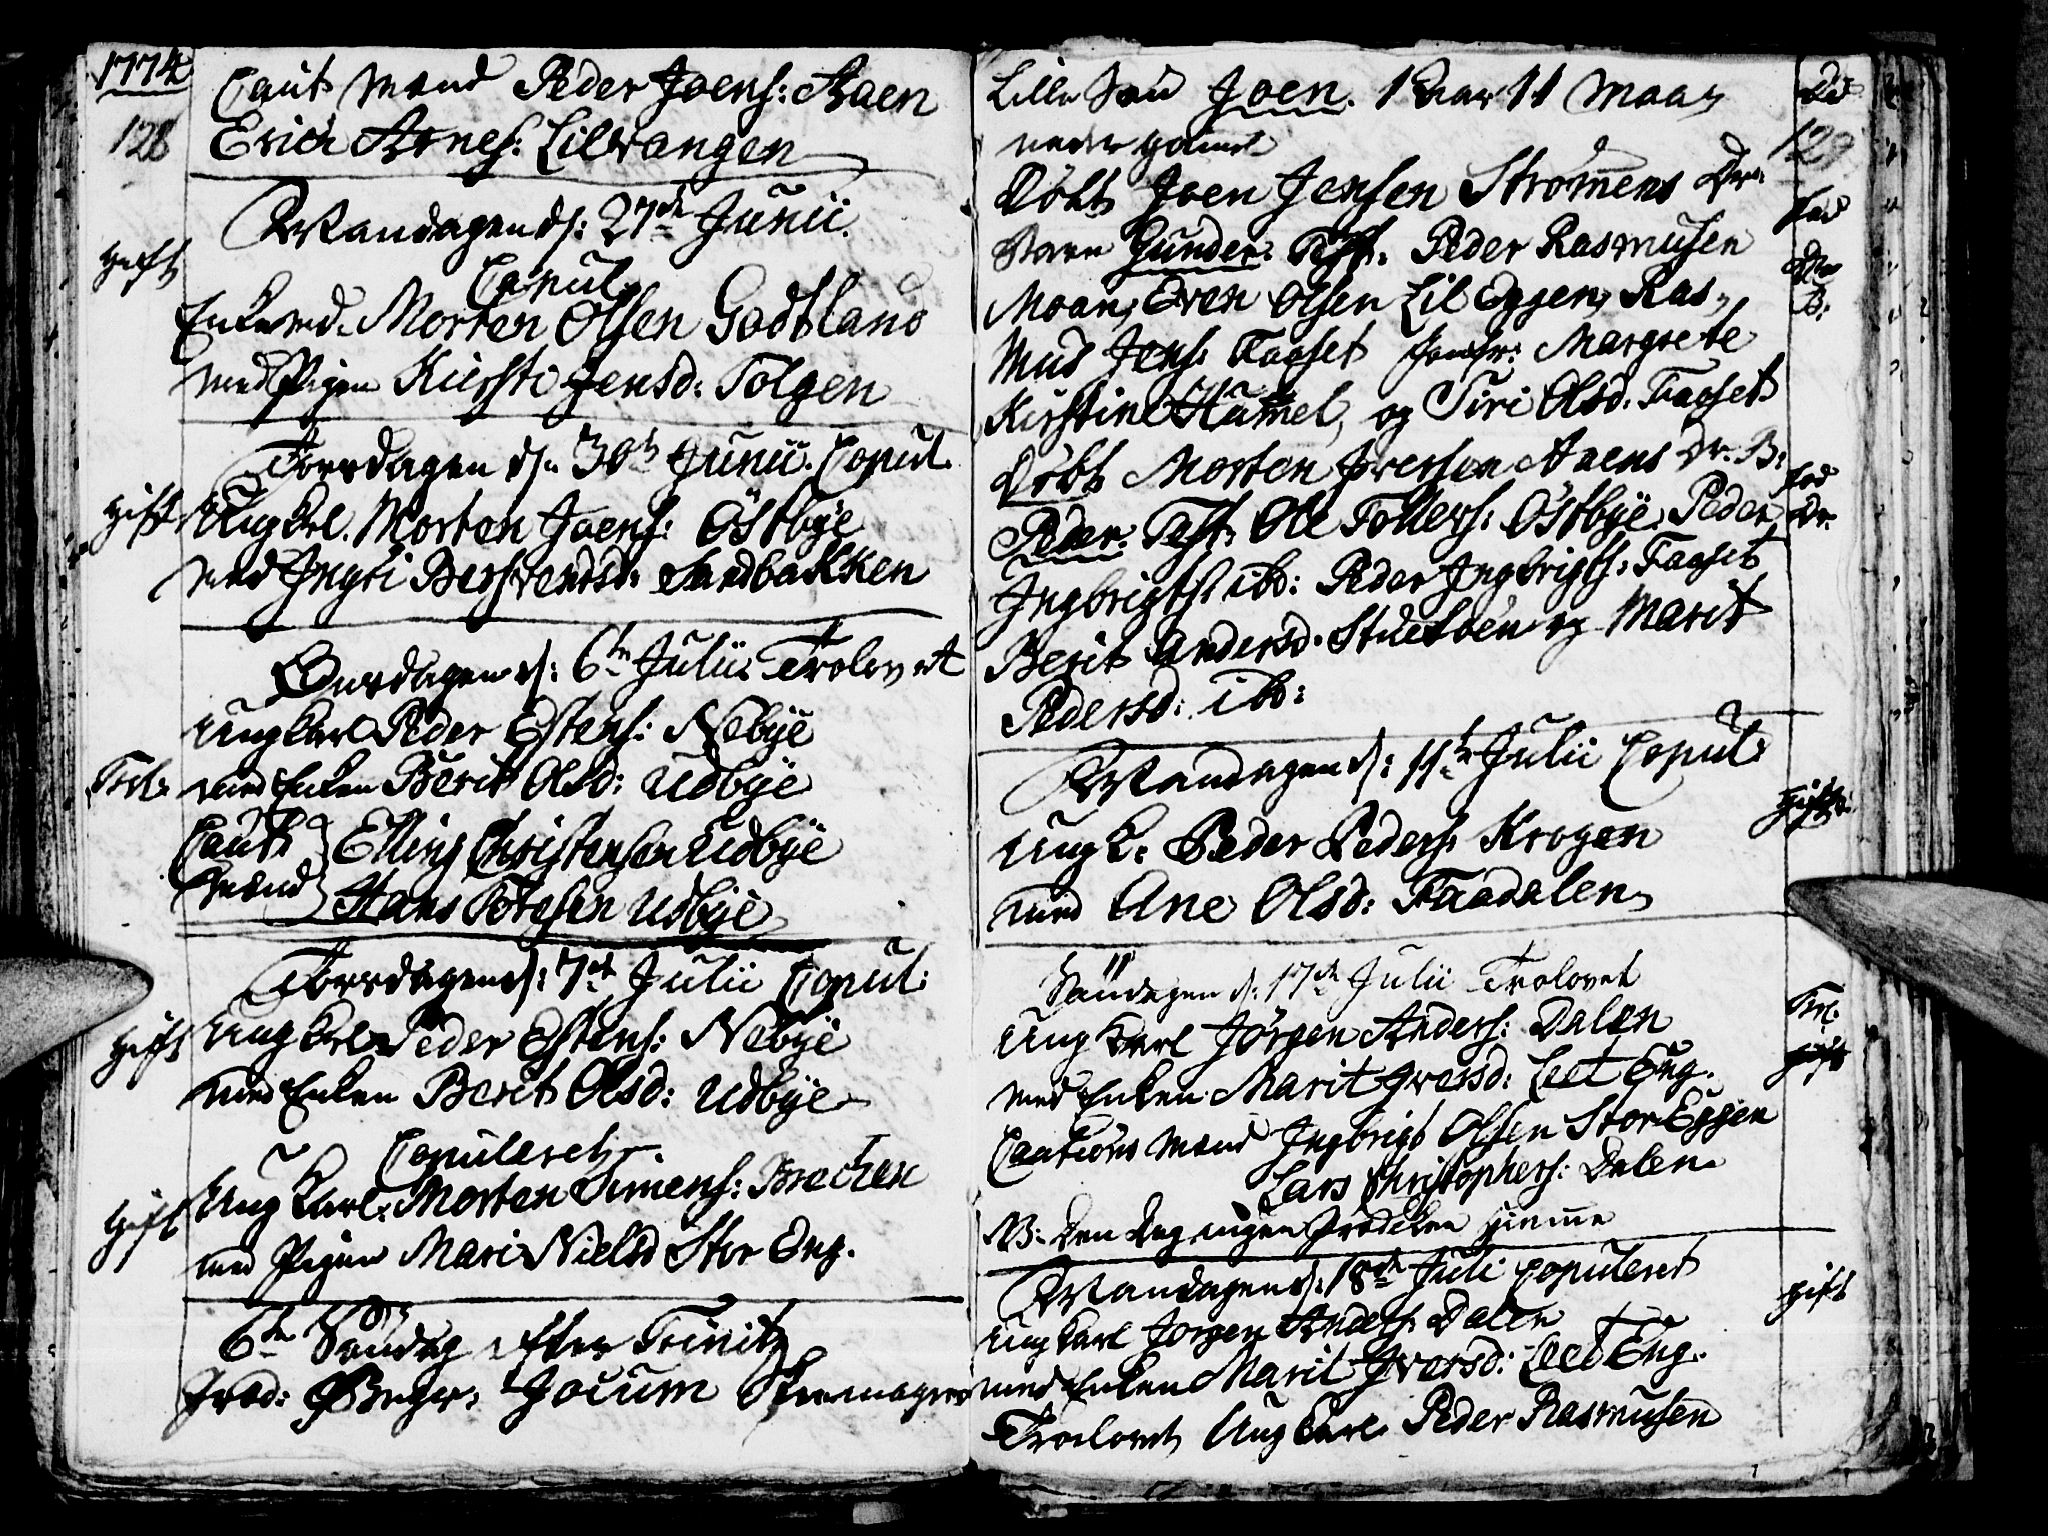 1774
128
Caut: Mænd Peder Joens: Aaen
Erich Arnes: Lilvangen
Mandagen d: 27de Junii.
Gift
Copul.
Enkemd. Morten Olsen Godtland
med Pigen Kirsti Jensd: Tolgen
Torsdagen d: 30te Junii. Copul.
Gift
Ung Krl. Morten Joens: Östbÿe
med Ingri Bersvendsd: Sandbakken
Onsdagen d: 6te Julii Trolovet
Ung Karl Peder Estens: Nebÿe
Trol.
med Enken Berit Olsd: Udbÿe
Caut: Elling Christensen Udbÿe
Mænd Hans Totesen Udbÿe
Torsdagen d: 7de Julii Copul:
Gift
Ung Krl. Peder Estens: Nebÿe
med Enken Berit Olsd: Udbÿe
Copuleret
Gift
Ung Karl: Morten Simens: Bræcken
med Pigen Mari Nielsd Stor Eng.
6te Söndag efter Trinit:
Præd: Begr: Jocum
Lille Sön Joen. 1 Aar 11 Maan
129
Döbt Joen Jensen Strömens
Barn Gunder. Test. Peder Rasmusen
Moan, Even Olsen Lil Eggen, Ras-
mus Jens: Faaset Margrete
Kirstine Hummel, og Siri Olsd. Faaset
Döbt Morten Iversen Aaens B:
Peder. Test. Ole Tollefs: Östbÿe. Peder
Ingbrigts: ibd: Peder Ingbrigts: Faaset
Berit Andersd. Stueböen og Marit
Pedersd: ibd:
Mandagen d: 11te Julii Copul:
Gift
Ung K. Peder Peders: Krogen
med Ane Olsd: Faadalen
Söndagen d: 17de Julii Trolovet
Trl.
Ung Karl Jörgen Anders: Dalen
med Enken Marit Iversd: Leet Eng.
Cautions Mænd Ingbrigt Olsen Stor Eggen
Lars Christophers: Dalen
NB: Den Dag ingen Prædiken hiemme
Mandagen d: 18de Juli Copuleret
Gift
Ung Karl Jörgen Anders: Dalen
med Enken Marit Iversd: Leet Eng.
Trolovet Ung Karl Peder Rasmusen